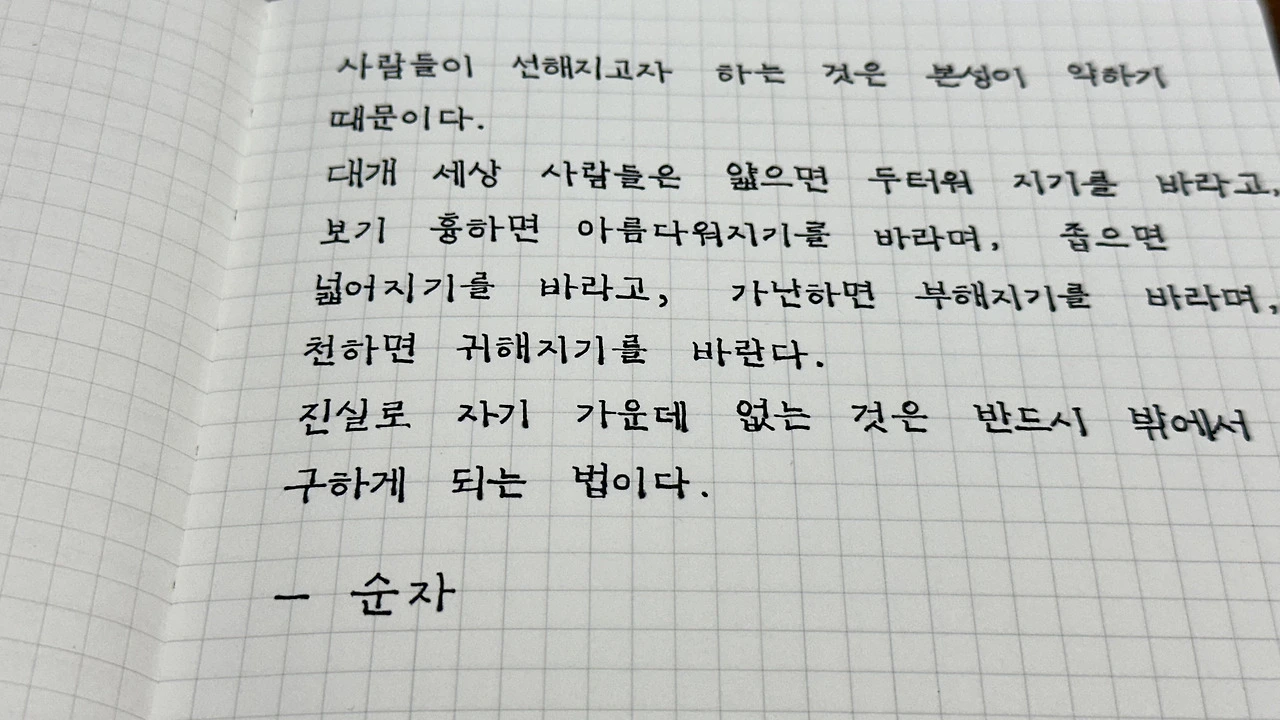 사람들이 선해지고자 하는 것은 본성이 악하기
때문이다.
대개 세상 사람들은 얇으면 두터워 지기를 바라고,
보기 흉하면 아름다워지기를 바라며, 좁으면
넓어지기를 바라고, 가난하면 부해지기를 바라며,
천하면 귀해지기를 바란다.
진실로 자기 가운데 없는 것은 반드시 밖에서
구하게 되는 법이다.
- 순자